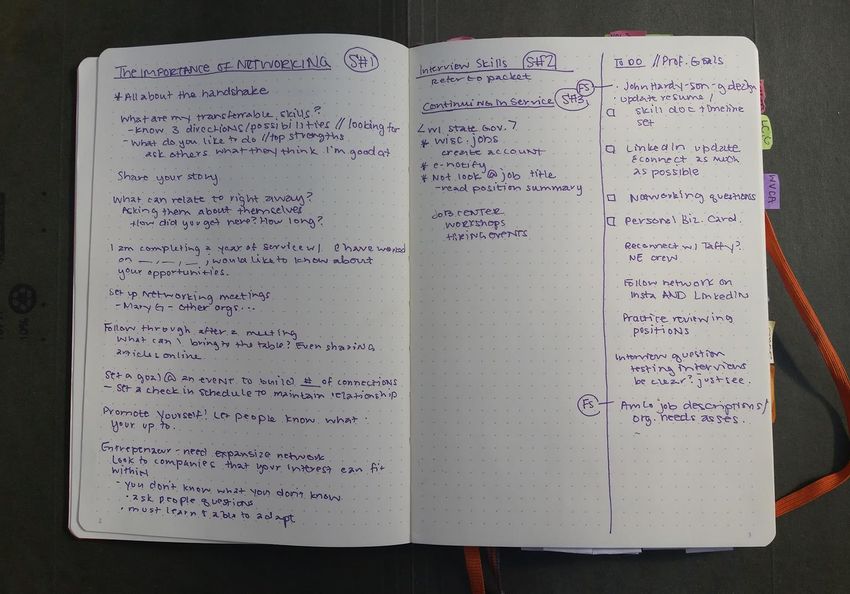 The IMPORTANCE OF NETWORKING S#1
* All about the handshake
What are my transferrable skills?
- Know 3 directions/possibilities // looking for
- What do you like to do // top strengths
ask others what they think I'm good at
Share your story
What can relate to right away?
Asking them about themselves
How did you get here? How long?
I am completing a year of service w/ I have worked
on __, __, __, would like to know about
your opportunities.
Set up Networking meetings
- Mary G - other orgs...
Follow through after a meeting
What can I bring to the table? Even sharing
articles online
Set a goal @ an event to build # of connections
- Set a check in schedule to maintain relationship
Promote yourself! Let people know what
your up to.
Entrepenaur - need expansize network
Look to companies that your interest can fit
within
- you don't know what you don't know
• ask people questions
• must learn & able to adapt
2
Interview Skills S#2
Refer to packet
Continuing In Service S#3
<WI State Gov.>
* wisc.jobs
create account
* e-notify
* Not look @ job title
- read position summary
JOB CENTER
WORKSHOPS
HIRING EVENTS
TO DO // Prof. Goals
FS
• John Hardy-son-g design
• update resume /
skill doc timeline
set
LinkedIn update
& connect as much
as possible
Networking questions
Personal Biz. Card.
Reconnect w/ Taffy?
NE crew
Follow network on
Insta AND LinkedIN
Practice reviewing
positions
Interview question
testing interviews
be clear? just see.
FS
job descriptions/
org. needs asses.
3
UCC
WVCA